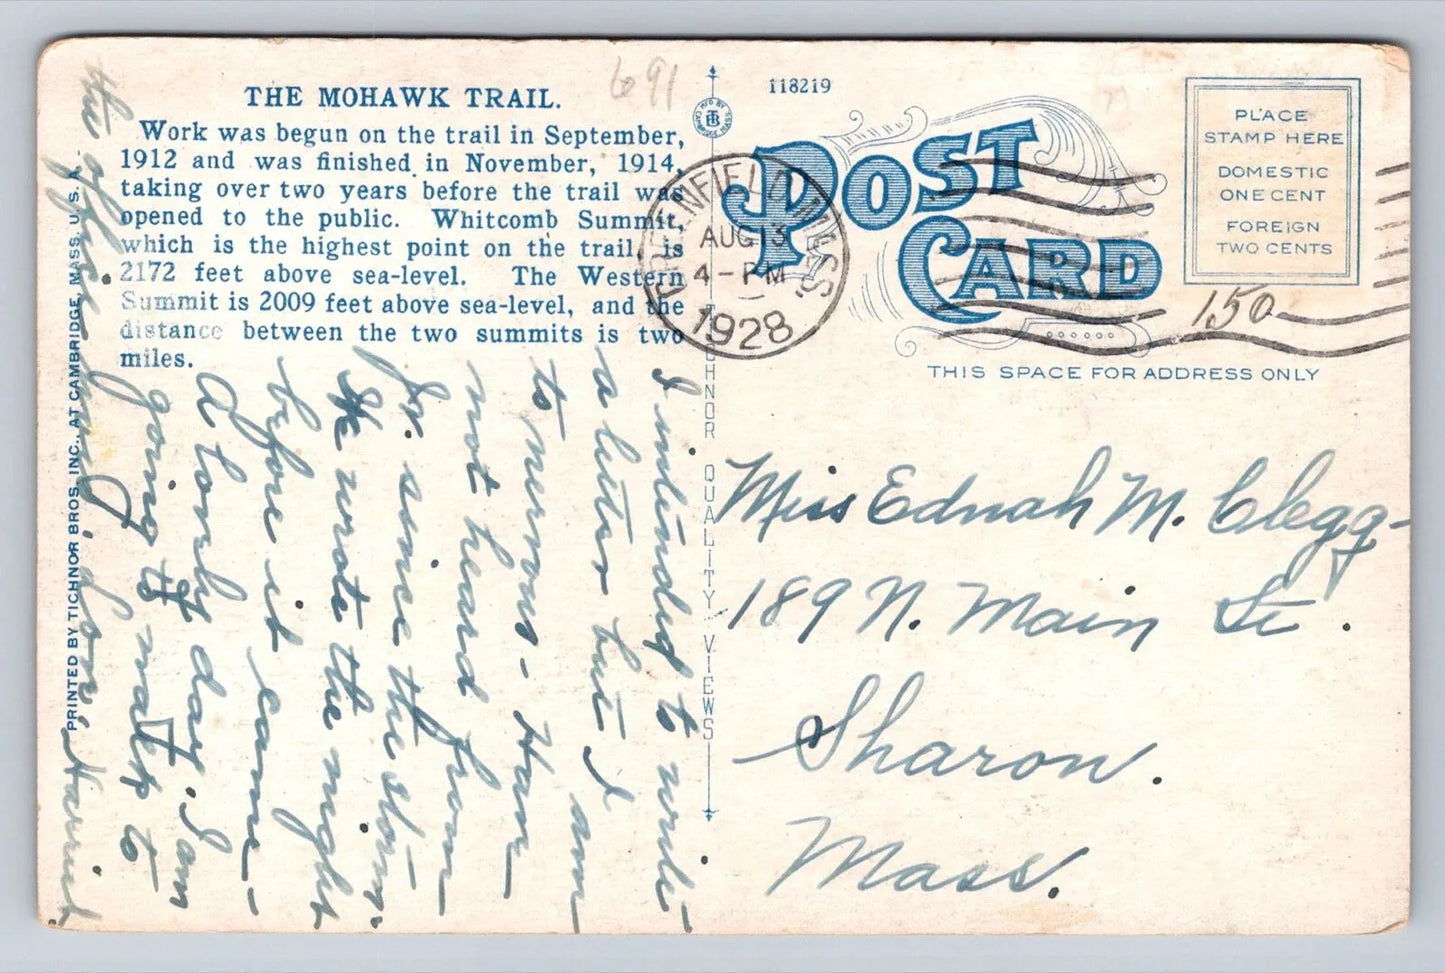 691
118219
THE MOHAWK TRAIL.
Work was begun on the trail in September,
1912 and was finished in November, 1914,
taking over two years before the trail was
opened to the public. Whitcomb Summit,
which is the highest point on the trail, is
2172 feet above sea-level. The Western
Summit is 2009 feet above sea-level, and the
distance between the two summits is two
miles.
PRINTED BY TICHNOR BROS. INC., AT CAMBRIDGE, MASS. U. S. A.
MF'D BY
TB
CAMBRIDGE, MASS.
TICHNOR QUALITY VIEWS
POST
CARD
MASS.
AUG 3
4-PM
1928
PLACE
STAMP HERE
DOMESTIC
ONE CENT
FOREIGN
TWO CENTS
150
THIS SPACE FOR ADDRESS ONLY
Miss Ednah M. Clegg
189 N. Main St.
Sharon.
Mass.
I intended to write
a letter but I am
to nervous - Have
not heard from
Jr. since the storm.
He wrote the night
before it came -
A lonely day. I am
going to walk to
the office
Love, Harriet.